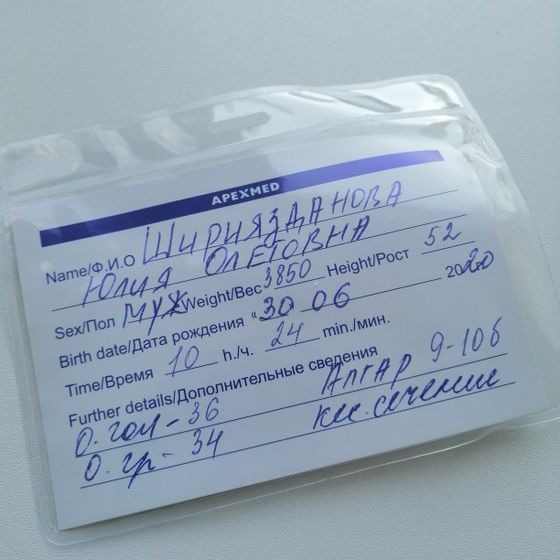 APEXMED
Name/Ф.И.О ШИРИЯЗДАНОВА
ЮЛИЯ ОЛЕГОВНА
Sex/Пол МУЖ Weight/Вес 3850 Height/Рост 52
Birth date/Дата рождения "30 06 2020
Time/Время 10 h./ч. 24 min./мин.
Further details/Дополнительные сведения
О. гол - 36 АПГАР 9-10б
О. гр - 34 кес. сечение